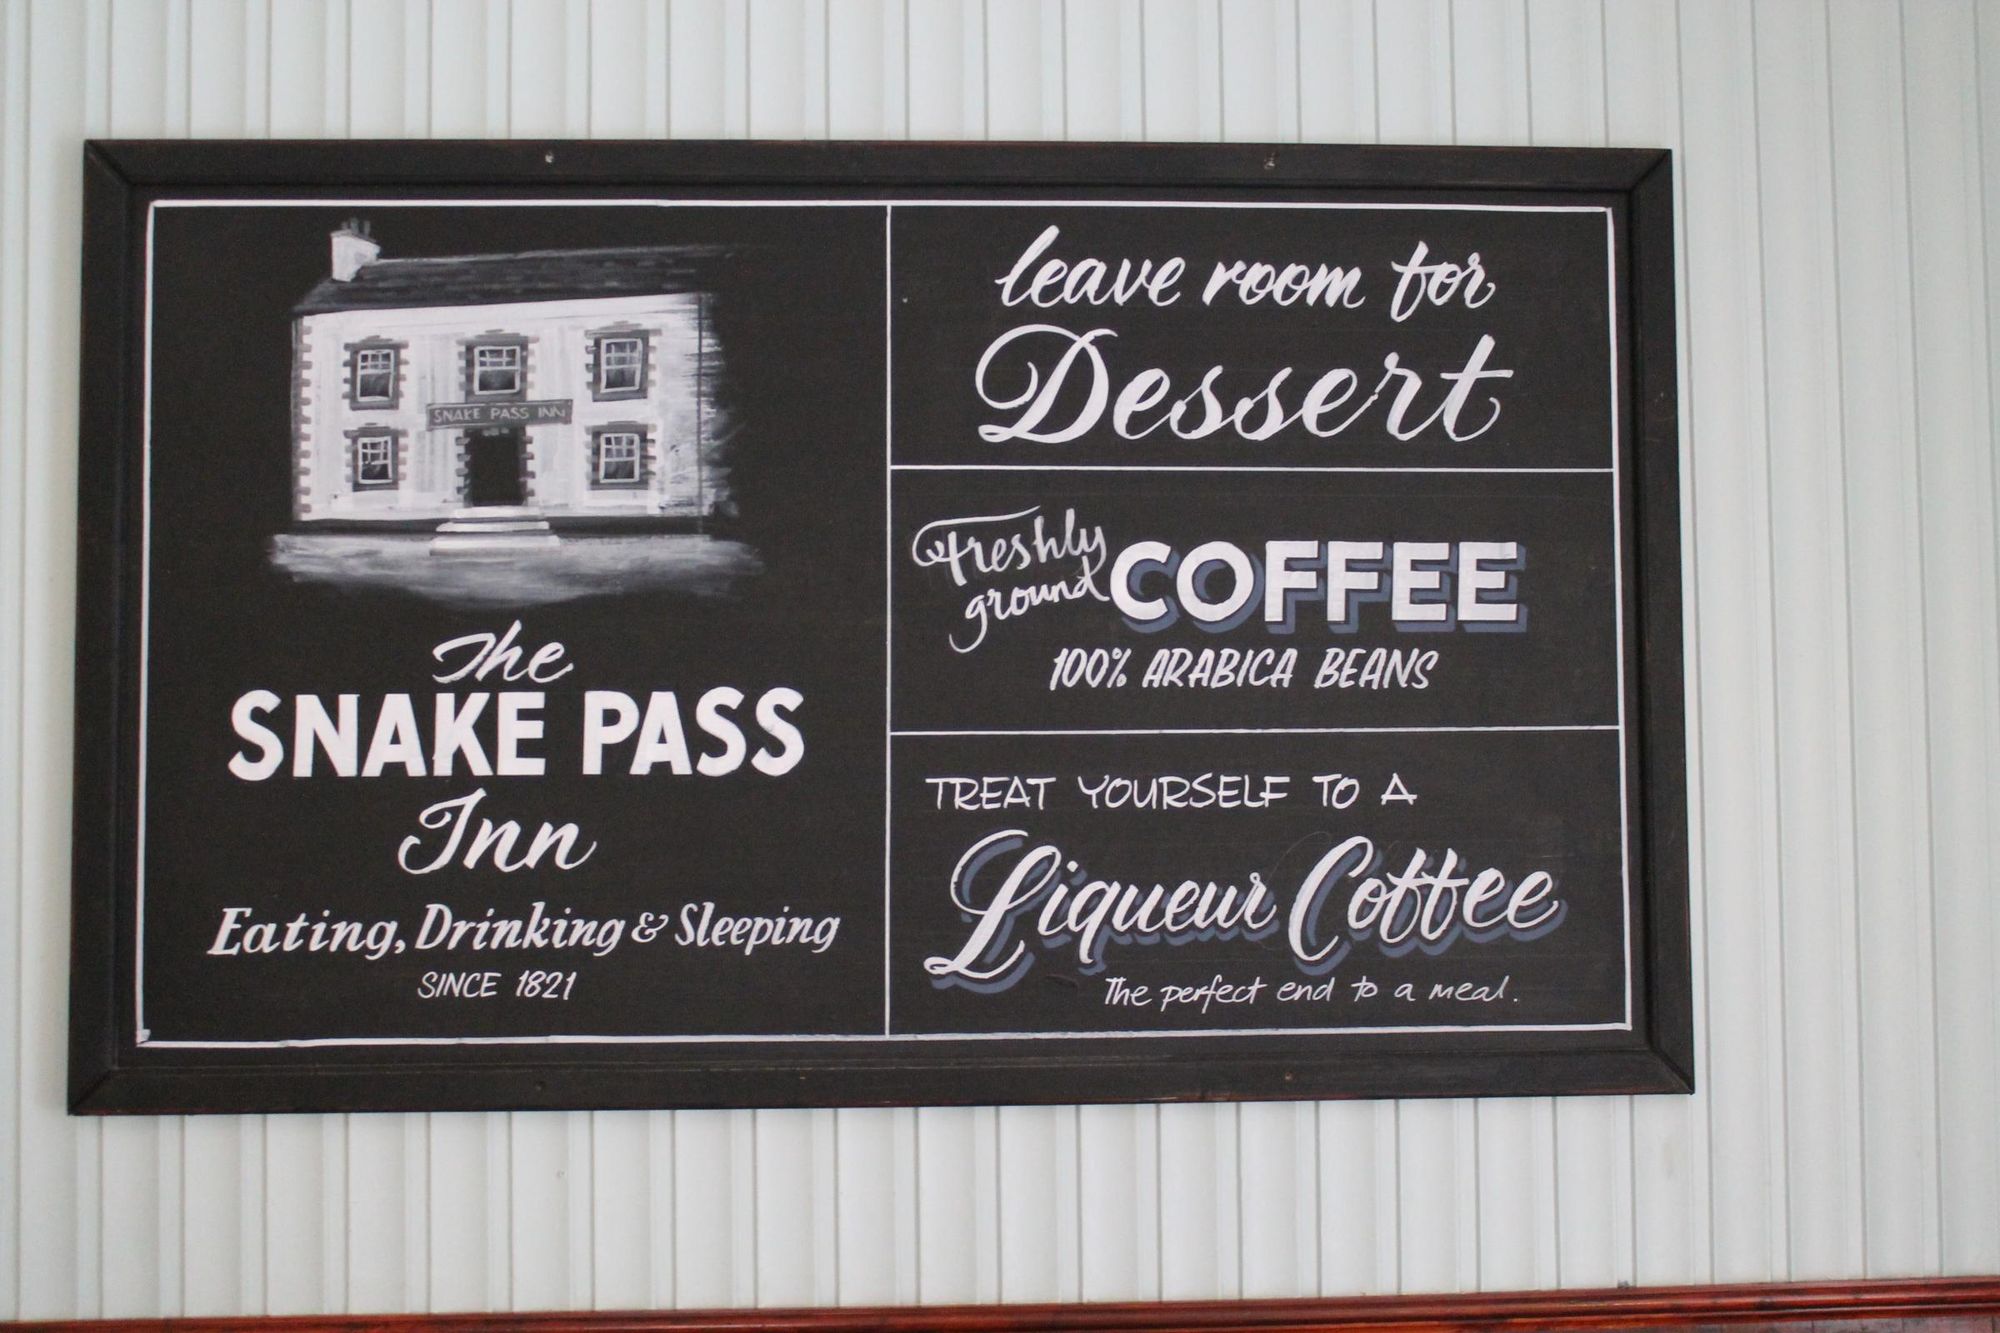 SNAKE PASS INN
The
SNAKE PASS
Inn
Eating, Drinking & Sleeping
SINCE 1821
leave room for
Dessert
Freshly
ground COFFEE
100% ARABICA BEANS
TREAT YOURSELF TO A
Liqueur Coffee
The perfect end to a meal.